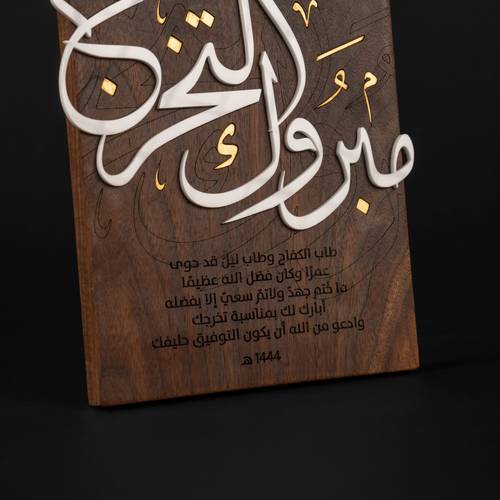 مبروك التخرج
طاب الكفاح وطاب ليل قد حوى
عمرًا وكان فضل الله عظيمًا
ما خُتم جهدٌ ولاتمّ سعيٌ إلا بفضله
أبارك لك بمناسبة تخرجك
وادعو من الله أن يكون التوفيق حليفك
1444 هـ